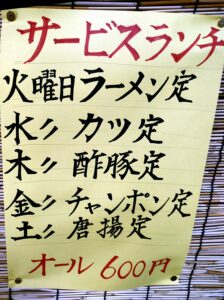 サービスランチ
火曜日ラーメン定
水〃 カツ定
木〃 酢豚定
金〃 チャンポン定
土〃 唐揚定
オール 600円